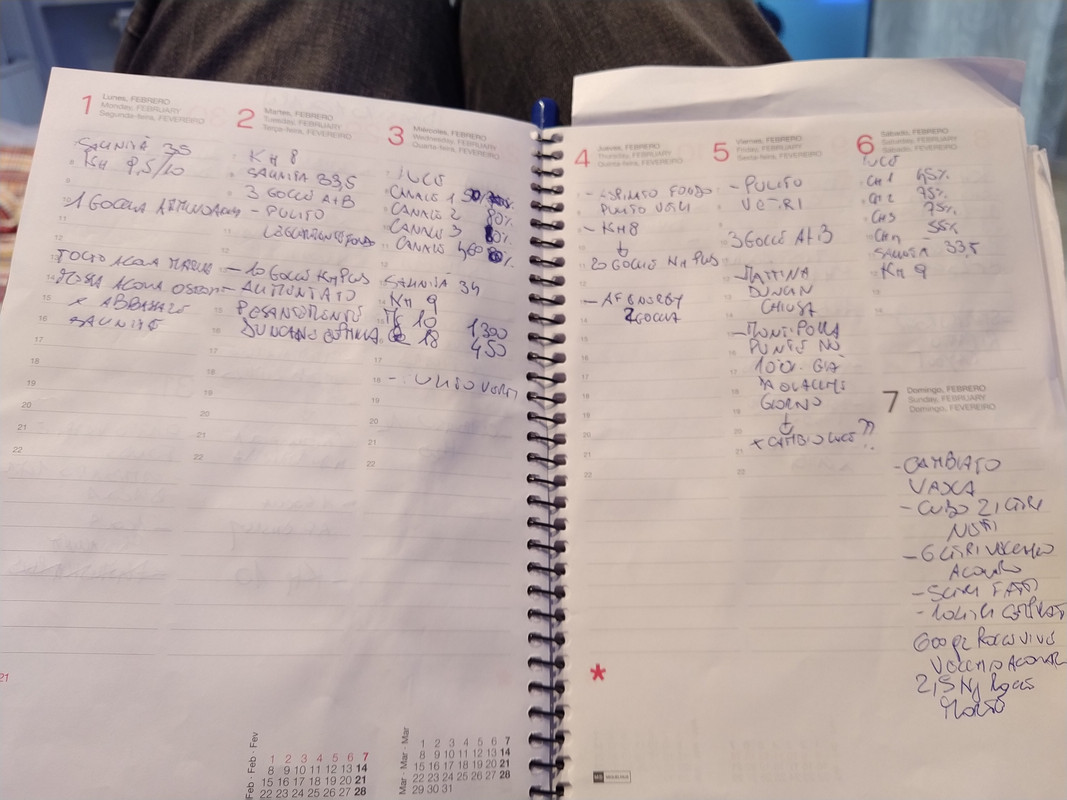 1
Lunes, FEBRERO
Monday, FEBRUARY
Segunda-feira, FEVEREIRO
SALINITÀ 35
KH 9,5/10
1 GOCCIA
TOLTO ACQUA
ACQUA
X ABBASSARE
2
Martes, FEBRERO
Tuesday, FEBRUARY
Terça-feira, FEVEREIRO
KH 8
SALINITÀ 33,5
3 GOCCE A+B
- PULITO
LEGGERMENTE FONDO
- 10 GOCCE KH PLUS
- AUMENTATO
PESANTEMENTE
DUNCAN
3
Miércoles, FEBRERO
Wednesday, FEBRUARY
Quarta-feira, FEVEREIRO
LUCE
CANALE 1
CANALE 2 80%
CANALE 3 80%
CANALE
SALINITÀ 34
KH 9
10 1300
18 450
17
18
19
20
21
22
4
Jueves, FEBRERO
Thursday, FEBRUARY
Quinta-feira, FEVEREIRO
- ASPIRATO FONDO
PULITO VETRI
- KH8
↓
20 GOCCE KH PLUS
- AF ENERGY
2 GOCCIA
5
Viernes, FEBRERO
Friday, FEBRUARY
Sexta-feira, FEVEREIRO
- PULITO
VETRI
3 GOCCE A+B
- MATTINA
DUNCAN
CHIUSA
- MONTIPORA
PUNTE NO
100% GIÀ
DA QUALCHE
GIORNO
↓
X CAMBIO LUCE??
6
Sábado, FEBRERO
Saturday, FEBRUARY
Sábado, FEVEREIRO
LUCE
CH 1 45%
CH 2 75%
CH3 75%
CH4 55%
SALINITÀ 33,5
KH 9
7
Domingo, FEBRERO
Sunday, FEBRUARY
Domingo, FEVEREIRO
- CAMBIATO
VASCA
- CUBO 21 LITRI
NETTI
- 6 LITRI VECCHIO
ACQUARIO
- 5 LITRI FATTI
- 10 LITRI COMPRATI
600 gr ROCCE VIVE
VECCHIO ACQUARIO
2,5 Kg ROCCE
MORTE
21
Feb - Feb - Fev
1 2 3 4 5 6 7
8 9 10 11 12 13 14
15 16 17 18 19 20 21
22 23 24 25 26 27 28
Mar - Mar - Mar
1 2 3 4 5 6 7
8 9 10 11 12 13 14
15 16 17 18 19 20 21
22 23 24 25 26 27 28
29 30 31